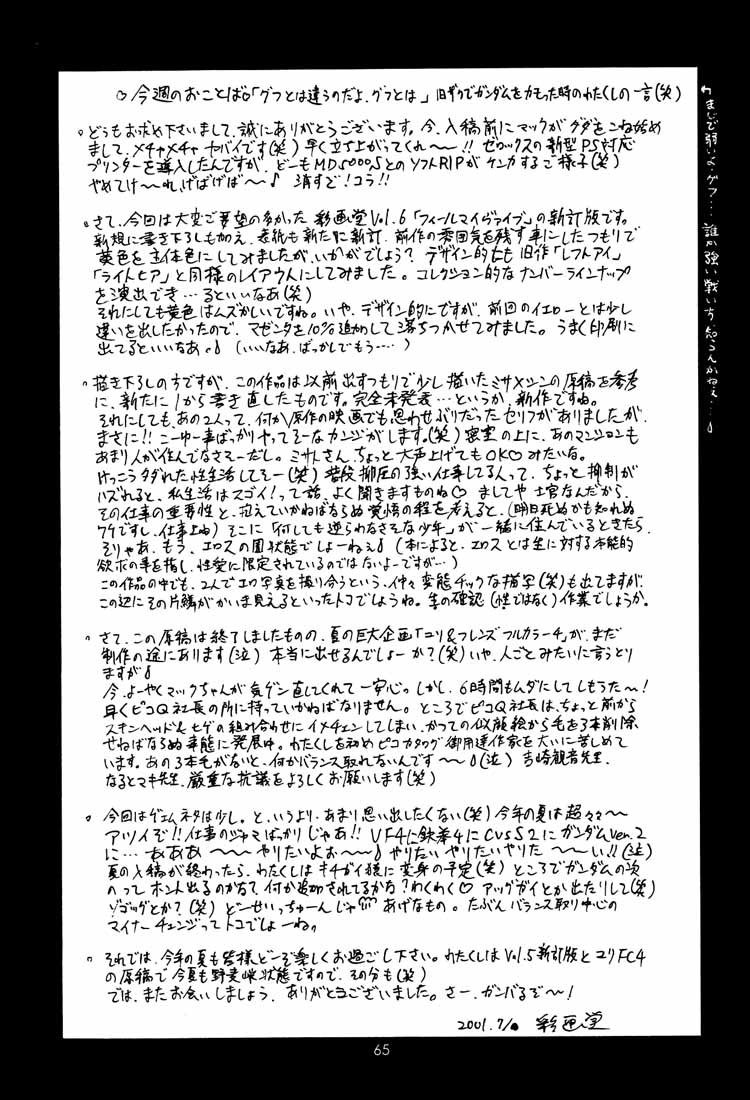 ♡今週のおことば♡「グフとは違うのだよ、グフとは」旧ザクでガンダムをカモった時のわたくしの一言(笑)
どうもお求め下さいまして、誠にありがとうございます。今、入稿前にマックがグダをこね始め
まして、メチャメチャヤバイです(笑)早く立ち上がってくれ〜!!ゼロックスの新型PS対応
プリンターを導入したんですが、どーもMD5000SとのソフトRIPがケンカするご様子(笑)
やめてけ〜れ、げばげば〜♪ 消すど!コラ!!
さて、今回は大変ご要望の多かった彩画堂Vol.6「フィールマイヴァイブ」の新訂版です。
新規に書き下ろしも加え、表紙も新たに新訂、前作の雰囲気を残す事にしたつもりで
黄色を主体色にしてみましたが、いかがでしょう?デザイン的にも旧作「レフトアイ」
「ライトヒア」と同様のレイアウトにしてみました。コレクション的なナンバーラインナップ
を演出でき…るといいなあ(笑)
それにしても黄色はムズかしいですね。いや、デザイン的にですが、前回のイエローとは少し
違いを出したかったので、マゼンタを10%追加して落ちつかせてみました。うまく印刷に
出てるといいなあ。♪ (いいなあ、ばっかしでもう‥‥)
描き下ろしのちですが、この作品は以前出すつもりで少し描いたミサ×シンの原稿を参考
に、新たに1から書き直したものです。完全未発表…というか、新作ですね。
それにしても、あの2人って、何か原作の映画でも思わせぶりだったセリフがありましたが、
まさに!!こーゆー事ばっかりやってそーなカンジがします。(笑)密室の上に、あのマンションも
あまり人が住んでなさそーだし。ミサトさん、ちょっと大声上げてもOK♡みたいな。
けっこうタダれた性生活してそー(笑)普段抑圧の強い仕事してる人って、ちょっと抑制が
ハズれると、私生活はスゴイ!って話、よく聞きますものね♡ ましてや士官なんだから、
その仕事の重要性と、控えていかねばならぬ覚悟の程を考えると、(明日死ぬかも知れぬ
ワケですし、仕事上ね)そこに「何しても逆らわなさそな少年」が一緒に住んでいるときたら、
そりゃあ、もう、エロスの園状態でしょーねぇ♪(本によると、エロスとは生に対する本能的
欲求の事を指し、性愛に限定されているのではないよーですが…)
この作品の中でも、2人でエロ写真を撮り合うという、仲々変態チックな描写(笑)も出てますが、
この辺にその片鱗がかいま見えるといったトコでしょうね。生の確認(性ではなく)作業でしょうか。
さて、この原稿は終了しましたものの、夏の巨大企画「ユリ&フレンズフルカラー4」が、まだ
制作の途にあります(泣) 本当に出せるんでしょーか?(笑)いや、人ごとみたいに言うとり
ますが♪
今、よーやくマックちゃんが気ゲン直してくれて一安心。しかし、6時間もムダにしてしもうた〜!
早くピコQ社長の所に持っていかねばなりません。ところでピコQ社長は、ちょっと前から
スキンヘッド&ヒゲの組み合わせにイメチェンしてしまい、かつての似顔絵から毛を3本削除
せねばならぬ事態に発展中。わたくしを初めピコカタログ御用達作家を大いに苦しめて
います。あの3本毛がないと、何かバランス取れないんです〜♪(泣)吉崎観音先生、
なるとマキ先生、厳重な抗議をよろしくお願いします(笑)
今回はゲェムネタは少し。と、いうより、あまり思い出したくない(笑)今年の夏は超々々〜
アツイぞ!!仕事のジャマばっかりじゃあ!!VF4に鉄拳4にCvsS2にガンダムVer.2
に…ああああ〜〜やりたいよぉ〜〜♪やりたいやりたいやりた〜〜い!!(泣)
夏の入稿が終わったら、わたくしはキチガイ猿に変身の予定(笑)ところでガンダムの次
のってホント出るのかな?何か追加されてるかな?わくわく♡ アッグガイとか出たりして(笑)
ゾゴッグとか?(笑) どーせいっちゅーんじゃ あげなもの。たぶんバランス取り中心の
マイナーチェンジってトコでしょーね。
それでは、今年の夏も皆様どーぞ楽しくお過ごし下さい。わたくしはVol.5新訂版とユリFC4
の原稿で今夏も野麦峠状態ですので、その分も(笑)
では、またお会いしましょう、ありがとうございました。さー、ガンバるぞ〜!
2001.7/ 彩画堂
まじで弱いよ、グフ…。誰か強い戦い方知らんかねぇ…♪
65